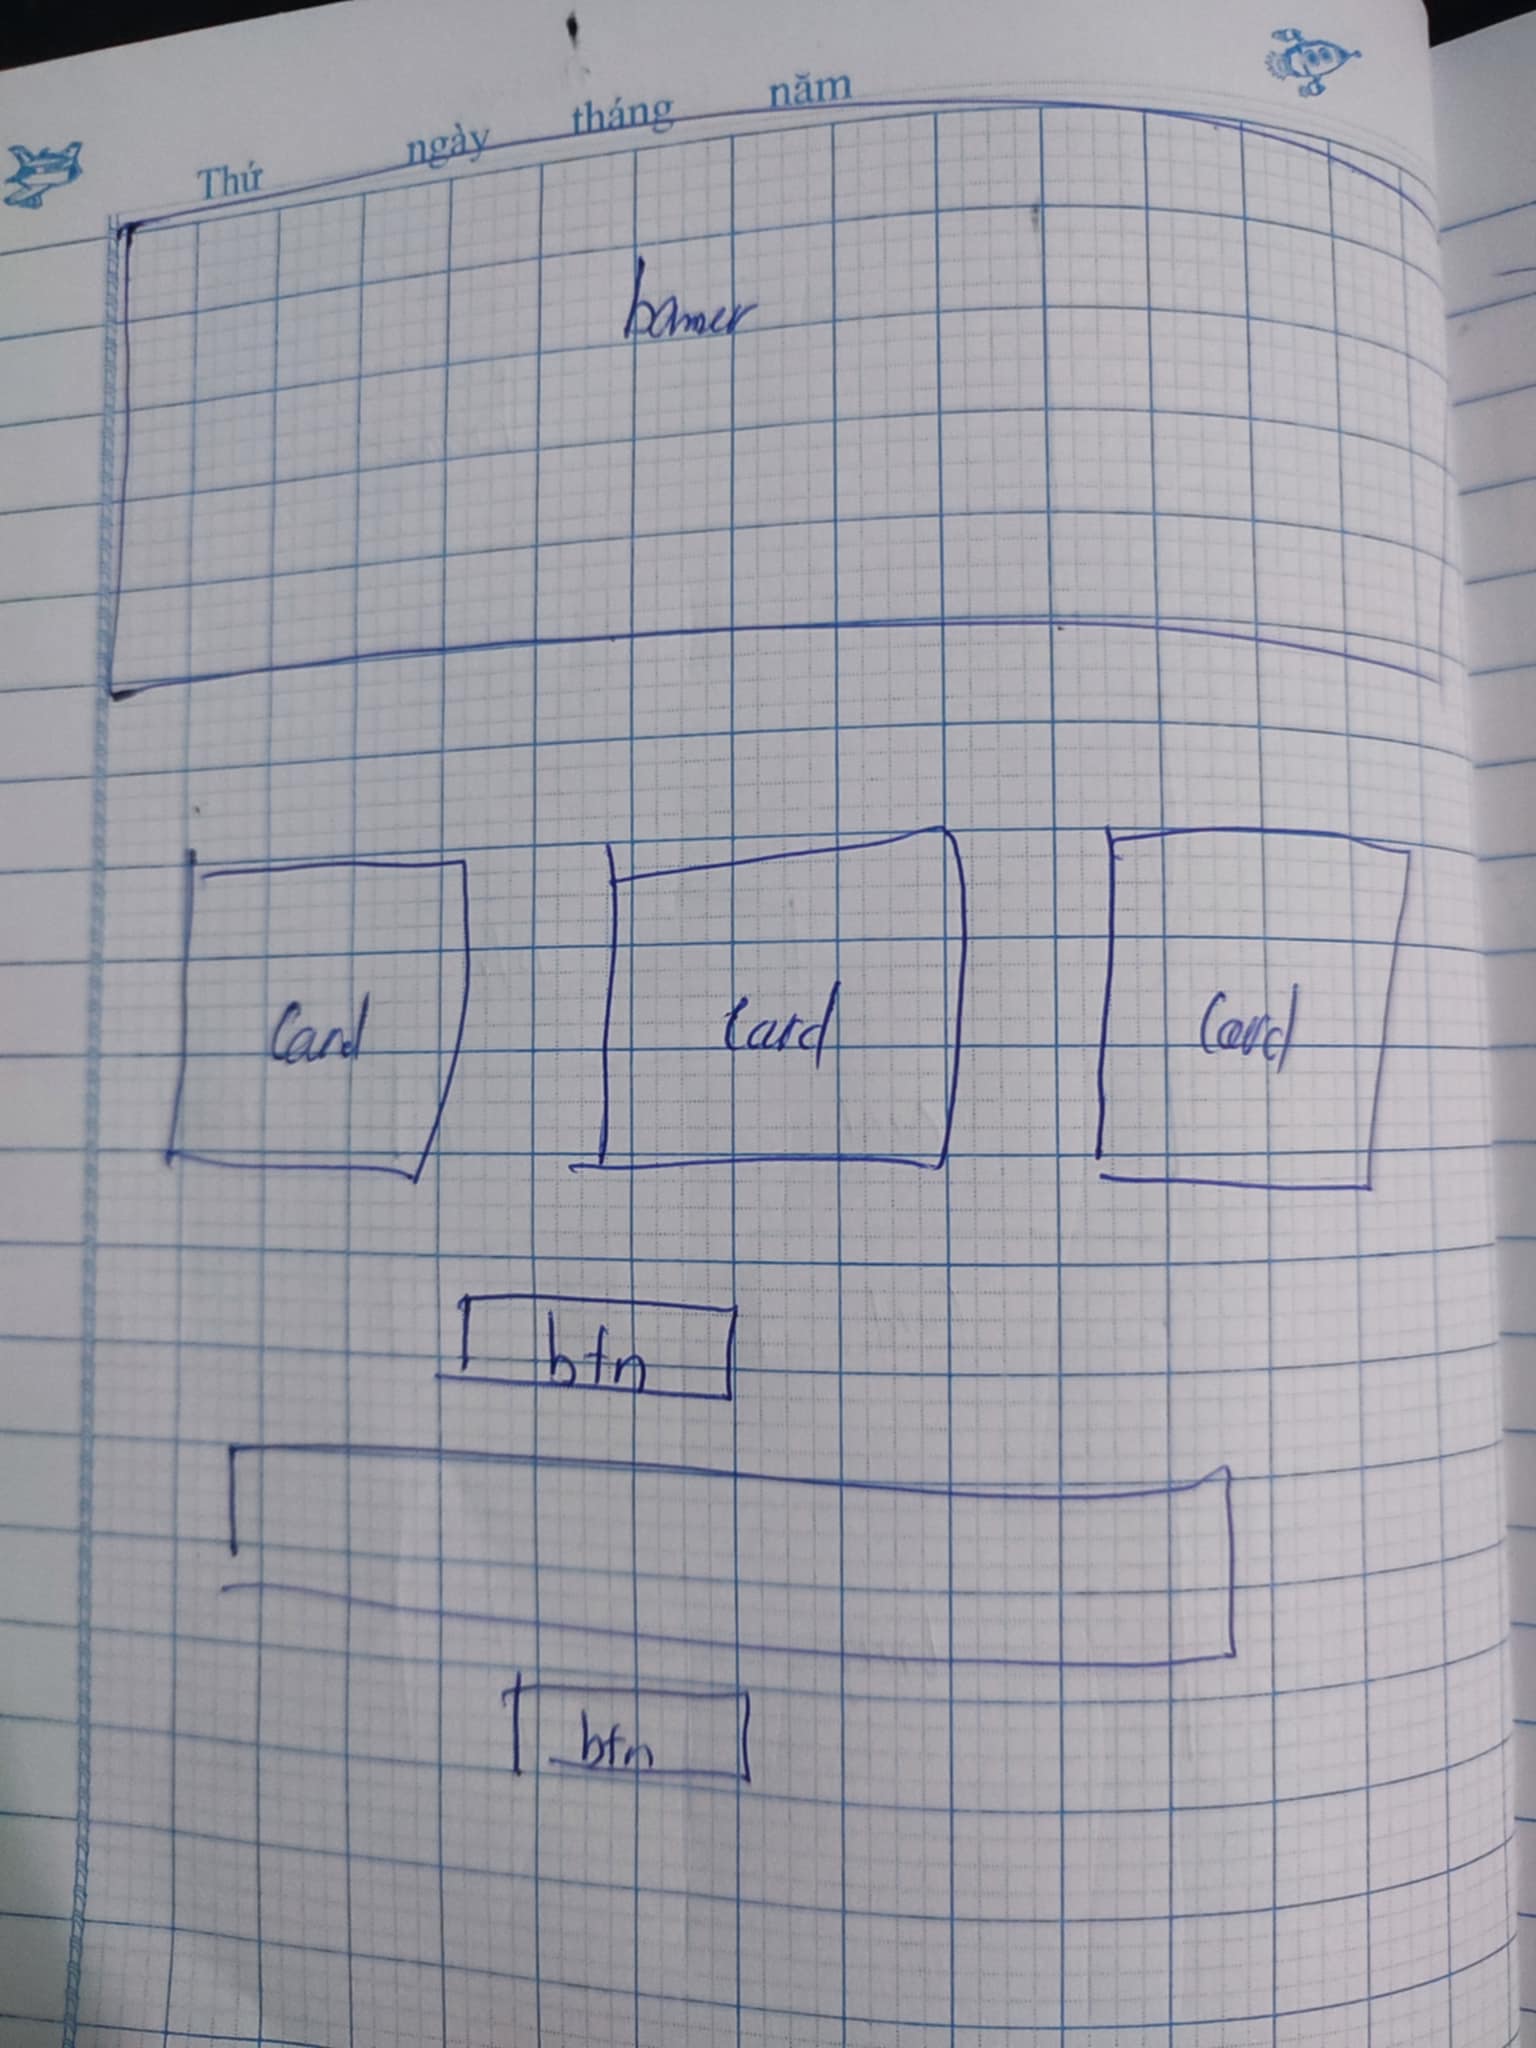 Thứ ngày tháng năm
banner
Card Card Card
btn
btn